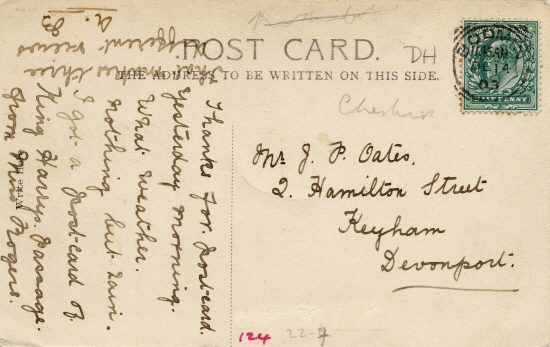 POST CARD.
THE ADDRESS TO BE WRITTEN ON THIS SIDE.
DH
Cheshire
HALFPENNY
Thanks for Post-card.
Yesterday morning.
What weather.
nothing but rain.
I got a Post-card of
King Harrys. Passage.
from Miss Rogers.
that makes three
different views
A. B
Mr J. P. Oates.
2. Hamilton Street
Keyham
Devonport.
124
22-9